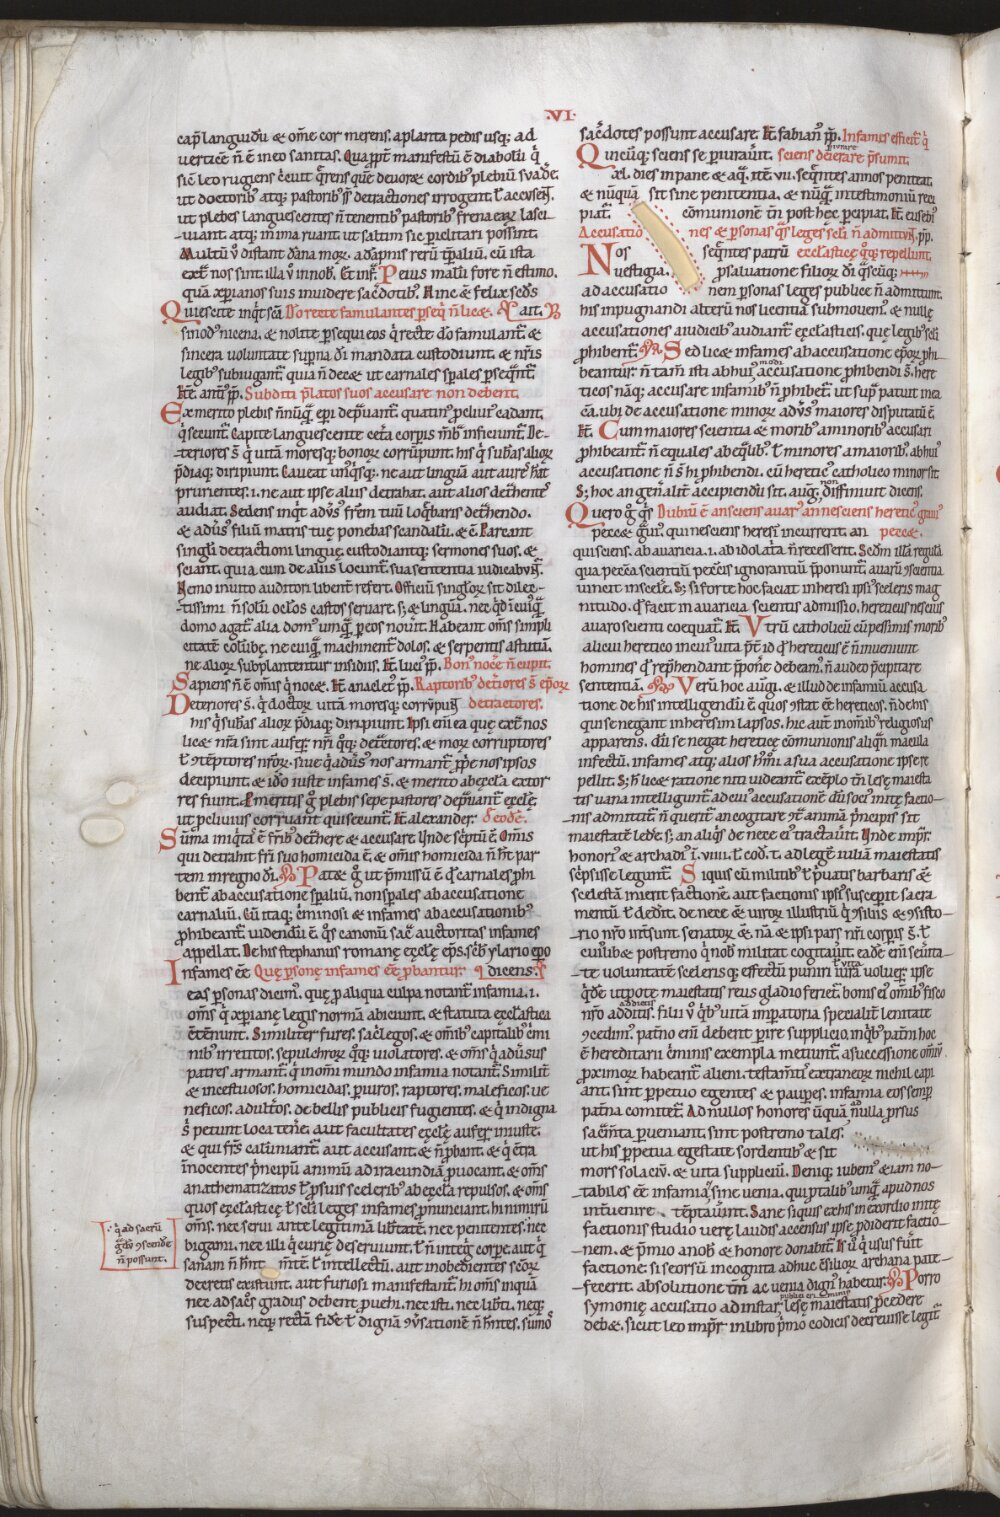 ·VI·
cap̄ languidū & om̄e cor merens. a planta pedis usq; ad
verticē n̄ ē in eo sanitas. Qua ꝓpt̄ manifestū ē diabolū q̇
sic̄ leo rugiens c̄cuit q̄rens que deuor& cordib' plebiū svadēt
ut doctorib' atq; pastorib' detractiones irrogent ł accusent.
ut plebes languescentes n̄ tenentib' pastorib' frena earꝝ lasci
uiant atq; in ima ruant. ut saltim sic periclitari possint.
Multū v̄ distant dāna morꝝ. a dapnis rerū tp̄aliū. cū ista
ext̄ nos sint. illa v̄ in nob̄. Et inf̄. Peius malū fore n̄ estimo.
quā xp̄ianos suis inuidere sac̄dotib'. Hinc & felix sc̄ds
Quiescite inq̄t sc̄a Dō recte famulantes ꝑseq̇ n̄ lic&. Pars. R
sinod' nicena. & nolite ꝑsequi eos q̇ recte dō famulant̄. &
sincera voluntate supna dī mandata custodiunt. & nr̄is
legib' subiugant̄. quia n̄ dec& ut carnales sp̄ales ꝑseq̄nt̄
It̄. anti' pp̄. Subditi p̄latos suos accusare non debent.
Ex merito plebis n̄nūq̄ epī dep̄uant̄. quatin' ꝓcliui' cadant.
q̇ secunt̄. Capite languescente cet̄a corpis mb̄ inficiunt̄. De-
teriores s̄ q̇ uitā moresq; bonoꝝ corrūpunt. his q̇ sub'as alioꝝ
p̄diaq; diripiunt. Caueat un'q̇sq; ne aut linguā aut aures h̄at
prurientes. i. ne aut ipse aliis detrahat. aut alios det̄hentes
audiat. Sedens inq̄t adv̄s' frem̄ tuū loq̄baris det̄hendo.
& adv̄s' filiū matris tuę ponebas scandalū. & c̄. Parcant
singli detractioni linguę. custodiantq; sermones suos. &
sciant. quia cum de aliis locunt̄. sua sententia iudicabunt.
Nemo inuito auditori libent̄ refert. Officiū singloꝝ sit dilec-
tissimi n̄ solū oclos castos seruare. s; & linguā. nec q̇d ī cuiq̄
domo agat̄ alia dom' umq̄ p eos nouit̄. Habeant om̄s simpli
citatē colūbę. ne cuiq̄ machinent̄ dolos. & serpentis astutiā.
ne alioꝝ subplantentur insidiis. It̄ luci' pp̄. Bon' noc̄e n̄ cupit.
Sapiens n̄ ē om̄is q̇ noc&. It̄. anaclet' pp̄. Raptorib' det̄iores s̄ ep̄oꝝ
Deteriores s̄. q̇ doctoꝝ uitā moresq; corrv̄punt detractores.
his q̇ sub'as alioꝝ p̄diaq; diripiunt. Ipsi enī ea quę ext̄ nos
lic& nr̄a sint aufer̄t. nr̄i q̇q; det̄tores. & morꝝ corruptores
ł 9tēptores nr̄oꝝ. siue q̇ adūs' nos armant̄. ꝓp̄e nos ipsos
decipiunt. & iđo iuste infames s̄. & merito ab ęccła extor
res fiunt. Pmeritis g̊ plebis sepe pastores dep̄uant̄ ęccłę.
ut ꝓcliuius corruant qui secunt̄. It̄ alexander. đ eodē.
Sūma iniq̇ta' ē fr̄ib' det̄here & accusare. Unde sc̄ptū ē. Om̄is
qui detrahit fr̄i suo homicida ē. & om̄is homicida n̄ ht̄ par
tem in regno dī. Pat& g̊ ut p̄missū ē qđ carnales ꝓhi
bent̄ ab accusatione sp̄aliū. non sp̄ales ab accusatione
carnaliū. Cū itaq; c̄minosi & infames ab accusationib'
ꝓhibeant̄. uidendū ē q̊s canonū sac̄ auctoritas infames
appellat. De his stephanus romanę ęccłę ep̄s. sc̄b ylario ep̄o
Infames eē Quę psonę infames eē ꝓbantur. dicens.
eas psonas dicim'. quę ꝓ aliqua culpa notant̄ infamia. i.
om̄s q̇ xp̄ianę legis normā abiciunt. & statuta ęccłastica
c̄tēnunt. Similiter fures. sac̄legos. & om̄ib' capitalib' c̄mi
nib' irretitos. sepulchroꝝ q̇q; violatores. & om̄s q̇ adūsus
patres armant̄. q̇ in om̄i mundo infamia notant̄. Similit̄
& incestuosos. homicidas. piuros. raptores. maleficos. ue
neficos. adult̄os. de bellis publicis fugientes. & q̇ indigna
s̄ petunt loca ten̄e. aut facultates ęccłę aufert iniuste.
& qui fr̄es calūniant̄. aut accusant. & n̄ ꝓbant. & q̇ c̄tra
īnocentes p̄ncipū animū ad iracundiā ꝓuocant. & om̄s
anathematizatos ł ꝓ suis sceleribus ab ęccła repulsos. & om̄s
quos ęccłasticę ł sc̄li leges infames ꝓnunciant. hi nimirū
om̄s. nec serui ante legitimā lib̄tatē. nec penitentes. nec
bigami. nec illi q̇ curię deseruiunt. ł n̄ integ̊ corpe. aut q̇
sanam n̄ hn̄t m̄tē ł intellectū. aut inobedientes sc̄oꝝ
decretis existunt. aut furiosi manifestant̄. hi om̄s inquā
nec ad sac̄s gradus debent ꝓuehi. nec isti. nec lib̄ti. neq;
suspecti. neq; rectā fidē ł dignā 9ūsationē n̄ hn̄tes. sūmos
· q̇ ad sacrū
gđū 9scende
n̄ possunt.
sac̄dotes possunt accusare. It̄ fabian' pp̄. Infames efficit̄ q̇
Quicūq; sciens se piurau̇it. sciens deierare p̄sumit. piurare
xl. dies in pane & aq̄. & vii. seq̄ntes annos peniteat.
& nūquā sit sine penitentia. & nūq̄ in testimoniū reci
piat̄. cōmunionē tn̄ post hęc pcipiat. It̄. eusebi'
Accusatio nes & psonas q̄s leges sc̄li n̄ admittunt. pp̄.
Nos seq̄ntes patrū ęccłasticę q̇q; repellunt.
uestigia. ꝓ saluatione filioꝝ dī q̄scūq;
ad accusatio nem psonas leges publicę n̄ admittunt.
his inpugnandi alterū nos licentiā submouem'. & nullę
accusationes a iudicib' audiant̄ ęccłasticis. que legib' sc̄li
ꝓhibent̄. Sed lic& infames ab accusatione ep̄oꝝ ꝓhi
beantur. n̄ tam̄ isti ab hui' modi accusatione ꝓhibendi s̄. here
ticos nāq; accusare infamib' n̄ ꝓhibet̄. ut sup̄ patuit in ea
cā. ubi de accusatione minoꝝ adv̄s' maiores disputatū ē.
It̄. Cum maiores scientia & morib' a minorib' accusari
ꝓhibeant̄. n̄ equales ab eq̄lib'. ł minores a maiorib'. ab hui'
accusatione n̄ s̄ hi ꝓhibendi. cū heretic' catholico minor sit
S; hoc an gen̄alit̄ accipiendū sit. aug' non diffiniuit dicens.
Quero g̊ q̇s Dubiū ē an sciens auar' an nesciens heretic' graui'
pecc& gui'. qui nesciens heresī incurrerit. an pecc&.
qui sciens. ab auaricia. i. ab idolat̄a n̄ recesserit. Scdm̄ illā regulā
qua pecc̄a scientiū pecc̄is ignorantiū p̄ponunt̄. auar' 9 scientia
uincit in scelē. S; si forte hoc faciat in heresi ipsi' sceleris mag
nitudo. qđ facit in auaricia scientis admissio. hereticus nescius
auaro scienti coequat̄. It̄. Vtrū catholicū cū pessimis morib'
alicui heretico in cui' uita p̄t id qđ hereticus ē n̄ inueniunt
homines qđ rep̄hendant p̄ponē debeam'. n̄ audeo p̄cipitare
sententiā. Verū hoc aug'. & illud de infamiū accusa
tione de his intelligendū ē quos 9stat eē hereticos. n̄ de his
qui se negant in heresim lapsos. hic aut̄ in om̄ib' religiosus
apparens. dū se negat hereticę cōmunionis aliq̄ macula
infectū. infames atq; alios h'mōi a sua accusatione ipse re
pellit. S; h̄ lic& ratione niti uideant̄. exēplo tn̄ lesę maiesta
tis uana intelligunt̄. ad cui' accusationē dū soci' initę factio-
nis admittit̄. n̄ querit̄ an cogitare 9t̄ animā p̄ncipis sit
maiestatē lęde&. s; an aliq̇s de nece ei' tractau̇it. Unde imp̄r.
honori' & archadi' ī. viiii. ł cod. t. ad legē iuliā maiestatis
sc̄psisse legunt̄. Siquis cū militib' ł p̄uatis barbaris &
scelestā inierit factionē. aut factionis ipsi' susceperit sacra
mentū ł dedit̄. de nece & uiroꝝ illustriū q̇ 9siliis & 9sisto-
rio nr̄o int̄sunt senatoꝝ & nā & ipsi pars nr̄i corpis s̄. ł
cuilib& postremo q̇ nob̄ militat cogitau̇it. eadē enī seu̇ita-
te voluntatē sceleris q̄ effectū puniri iura voluert. ipse
q̇dē utpote maiestatis reus gladio feriet̄. bonis ei' om̄ib' fisco
nr̄o additis. filii v̄ q̇b' uitā inp̄atoria specialit̄ lenitate
9cedim'. pat̄no enī deberent pire supplicio. in q̇b' pat̄ni hoc
ē hereditarii c̄minis exempla metiunt̄. a successione om̄iū
ꝓximoꝝ habeant̄ alieni. testam̄ti extraneoꝝ nichil capi
ant. sint ppetuo egentes & paupes. infamia eos semp
pat̄na comitet̄. Ad nullos honores ūquā nulla prsus
sac̄m̄ta pueniant. sint postremo tales.
ut his ppetua egestate sordentib' & sit
mors solaciū. & uita suppliciū. Deniq; iubem' & iam no-
tabiles eē infamia sine uenia. qui ꝓ talib' umq̄ apud nos
int̄uenire tēptaūint. Sane siquis ex his in exordio initę
factionis studio verę laudis accensus ipse ꝓdiderit factio-
nem. & p̄mio a nob̄ & honore donabit̄. Is v̄ q̇ usus fūit
factione. si seorsū incognita adhuc c̄silioꝝ archana pate-
fecerit. absolutione tm̄ ac uenia dign' habetur. Porro
symonię accusatio ad instar lesę maiestatis ꝓcedere
deb&. sicut leo imp̄r in libro p̄mo codicis decreuisse legit̄